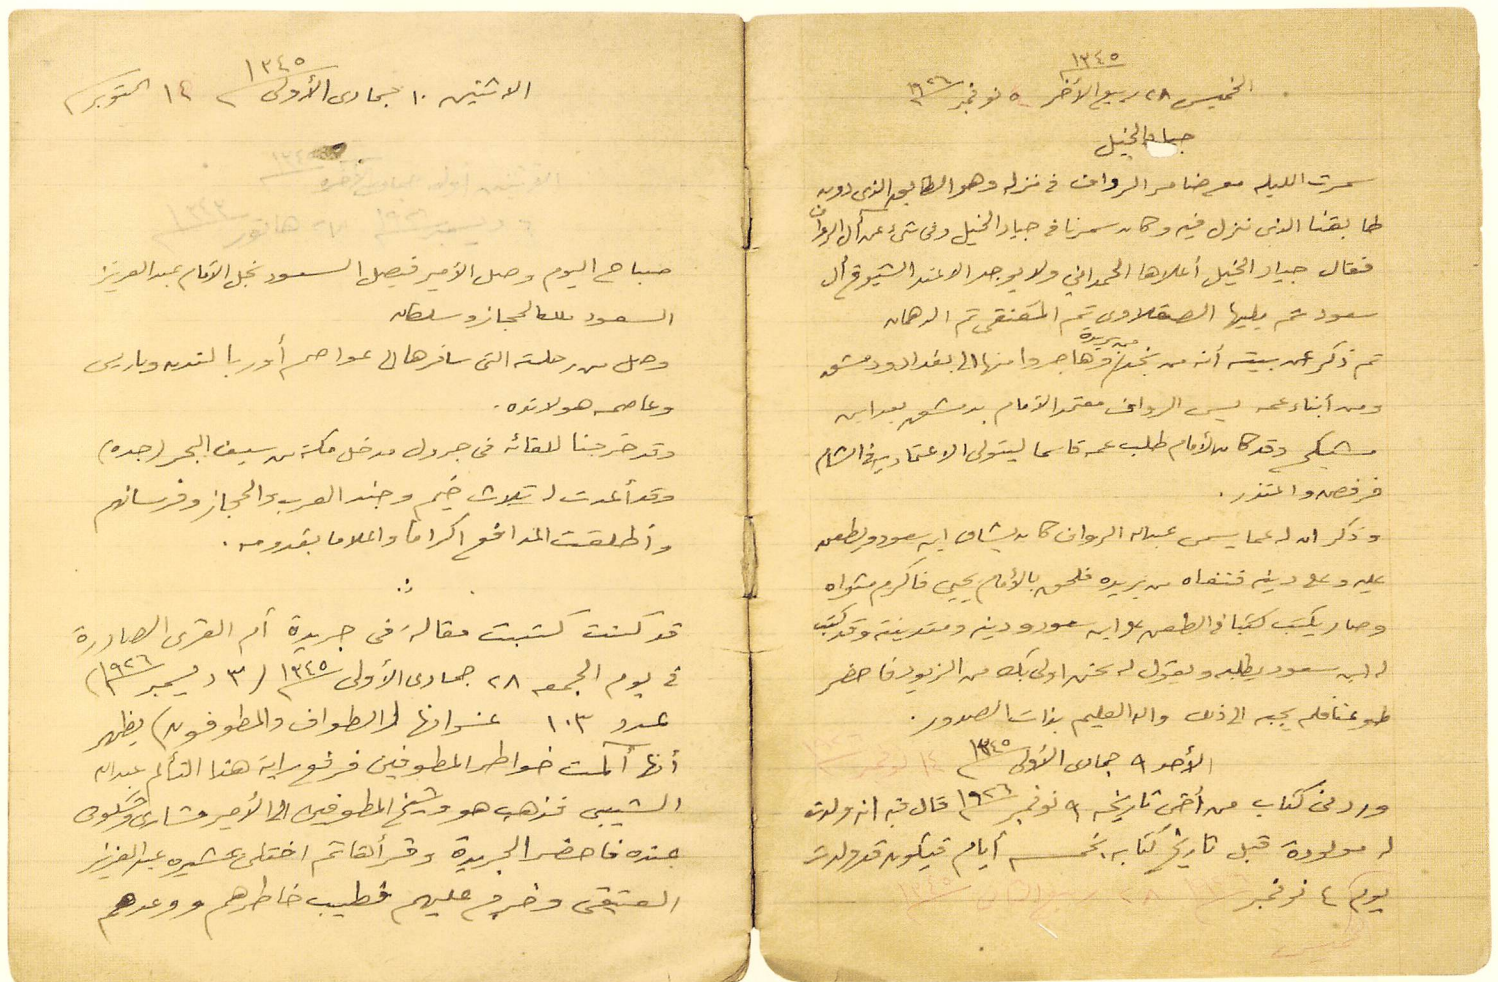 ١٣٤٥
الخميس ٢٨ ربيع الآخر ٥ نوفمبر ١٩٢٦
جياد الخيل
سمرت الليله مع ضامر الرواف في نزله وهو الطابق الذي دون
طابقنا الذي ننزل فيه وكان سمرنا في جياد الخيل وفي شيء عن آل الرواف
فقال جياد الخيل أعلاها الحمداني ولا يوجد الا عند الشيوخ آل
سعود ثم يليها الصقلاوي ثم المعنقى ثم الدهمان
ثم ذكر عن بيته أنه من نجد من بريدة وهاجروا منها الى بغداد ودمشق
ومن أبناء عمه يسن الرواف معتمد الامام بدمشق بعد ابن
وقد كان الامام طلب عمه قاسما ليتولى الاعتمادية في الشام
فرفض واعتذر .
وذكر ان له عما يسمى عبدالله الرواف كان يشاق ابن سعود ويطعن
عليه وعلى دينه فنفاه من بريده فلحق بالأمام يحيى فاكرم مثواه
وصار يكتب كتبا في الطعن على ابن سعود ودينه ومتدينته وقد كتب
له ابن سعود يطلبه ويقول له نحن اولى بك من الزيود فاحضر
طوعنا فلم يجبه الى ذلك والله العليم بذات الصدور .
الأحد ٩ جمادى الأولى ١٣٤٥ ١٤ نوفمبر ١٩٢٦
ورد منى كتاب من أخى تاريخه ٩ نوفمبر ١٩٢٦ قال فيه انه ولدت
له مولودة قبل تاريخ كتابه بخمسه أيام فيكون قد ولدت
يوم ٤ نوفمبر ٢٨ ربيع الثاني ١٣٤٥
الخميس
١٣٤٥
الاثنين ١٠ جمادى الأولى ١٤ اكتوبر
صباح اليوم وصل الأمير فيصل السعود نجل الامام عبدالعزيز
السعود ملك الحجاز وسلطان
وصل من رحلته التى سافرها الى عواصم أوربا لندن وباريس
وعاصمه هولانده .
وقد خرجنا للقائه فى جرول مدخل مكة من سيف البحر (جده)
وقد أعدت له ثلاث خيم وجند العرب والحجاز وفرسانهم
وأطلقت المدافع اكراما واعلاما بقدومه .
قد كنت كتبت مقالة فى جريدة أم القرى الصادرة
في يوم الجمعه ٢٨ جمادى الأولى ١٣٤٥ (٣ ديسمبر ١٩٢٦)
عدد ١٠٣ عنوانها (الطواف والمطوفون) يظهر
أنها آلمت خواطر المطوفين فرفع راية هذا التألم عبدالله
الشيبى فذهب هو وشيخ المطوفين الى الأمير مشارى وشكونى
عنده فاحضر الجريدة وقرأها ثم اختلى بمشيره عبدالعزيز
العتيقى وخرج عليهم فطيب خاطرهم ووعدهم